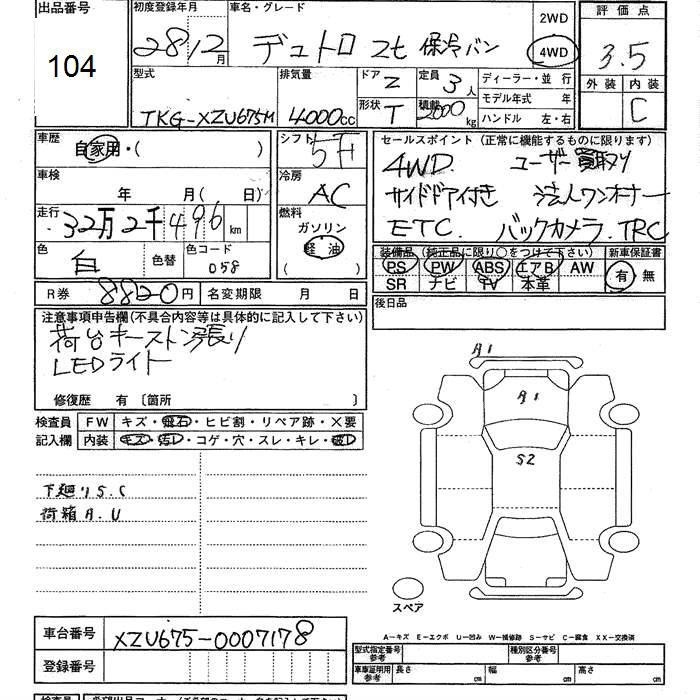 出品番号
104
初度登録年月
28 12月
車名・グレード
デュトロ 2t 保冷バン
2WD
4WD
評価点
3.5
外装 内装
C
型式
TKG-XZU675M
排気量
4000cc
ドア 2
形状 T
定員 3人
積載 2000kg
ディーラー・並行
モデル年式 年
ハンドル 左・右
車歴
自家用・( )
シフト
5F
セールスポイント (正常に機能するものに限ります)
4WD. ユーザー買取り
サイドドア付き 法人ワンオーナー
ETC. バックカメラ. TRC
車検
年 月( 日)
冷房
AC
走行
32万2千496km
燃料
ガソリン
軽油
( )
色
白
色替
色コード
058
装備品 (純正品に限り○をつけて下さい)
PS PW ABS エアB AW
SR ナビ TV 本革
新車保証書
有 無
R券 8820円
名変期限 月 日
後日品
注意事項申告欄(不具合内容等は具体的に記入して下さい)
荷台キーストン張り
LEDライト
修復歴 有〔箇所 〕
検査員
記入欄
FW キズ・飛石・ヒビ割・リペア跡・X要
内装 キズ・汚レ・コゲ・穴・スレ・キレ・破レ
下廻りS.C
荷箱A.U
A1
A1
S2
スペア
車台番号
XZU675-0007178
登録番号
A−キズ E−エクボ U−凹み W−補修跡 S−サビ C−腐食 XX−交換済
型式指定番号
参考
種別区分番号
参考
車庫証明用
参考
長さ cm
幅 cm
高さ cm